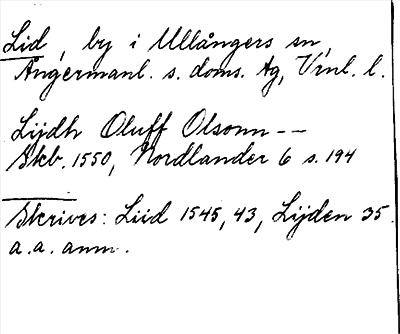 Lid, by i Ullångers sn,
Ångermanl. s. doms. tg, Vrnl. l.
Lijdh Oluff Olsonn --
Skb. 1550, Nordlander 6 s. 194
Skrives: Liid 1545, 43, Lijden 35.
a. a. anm.